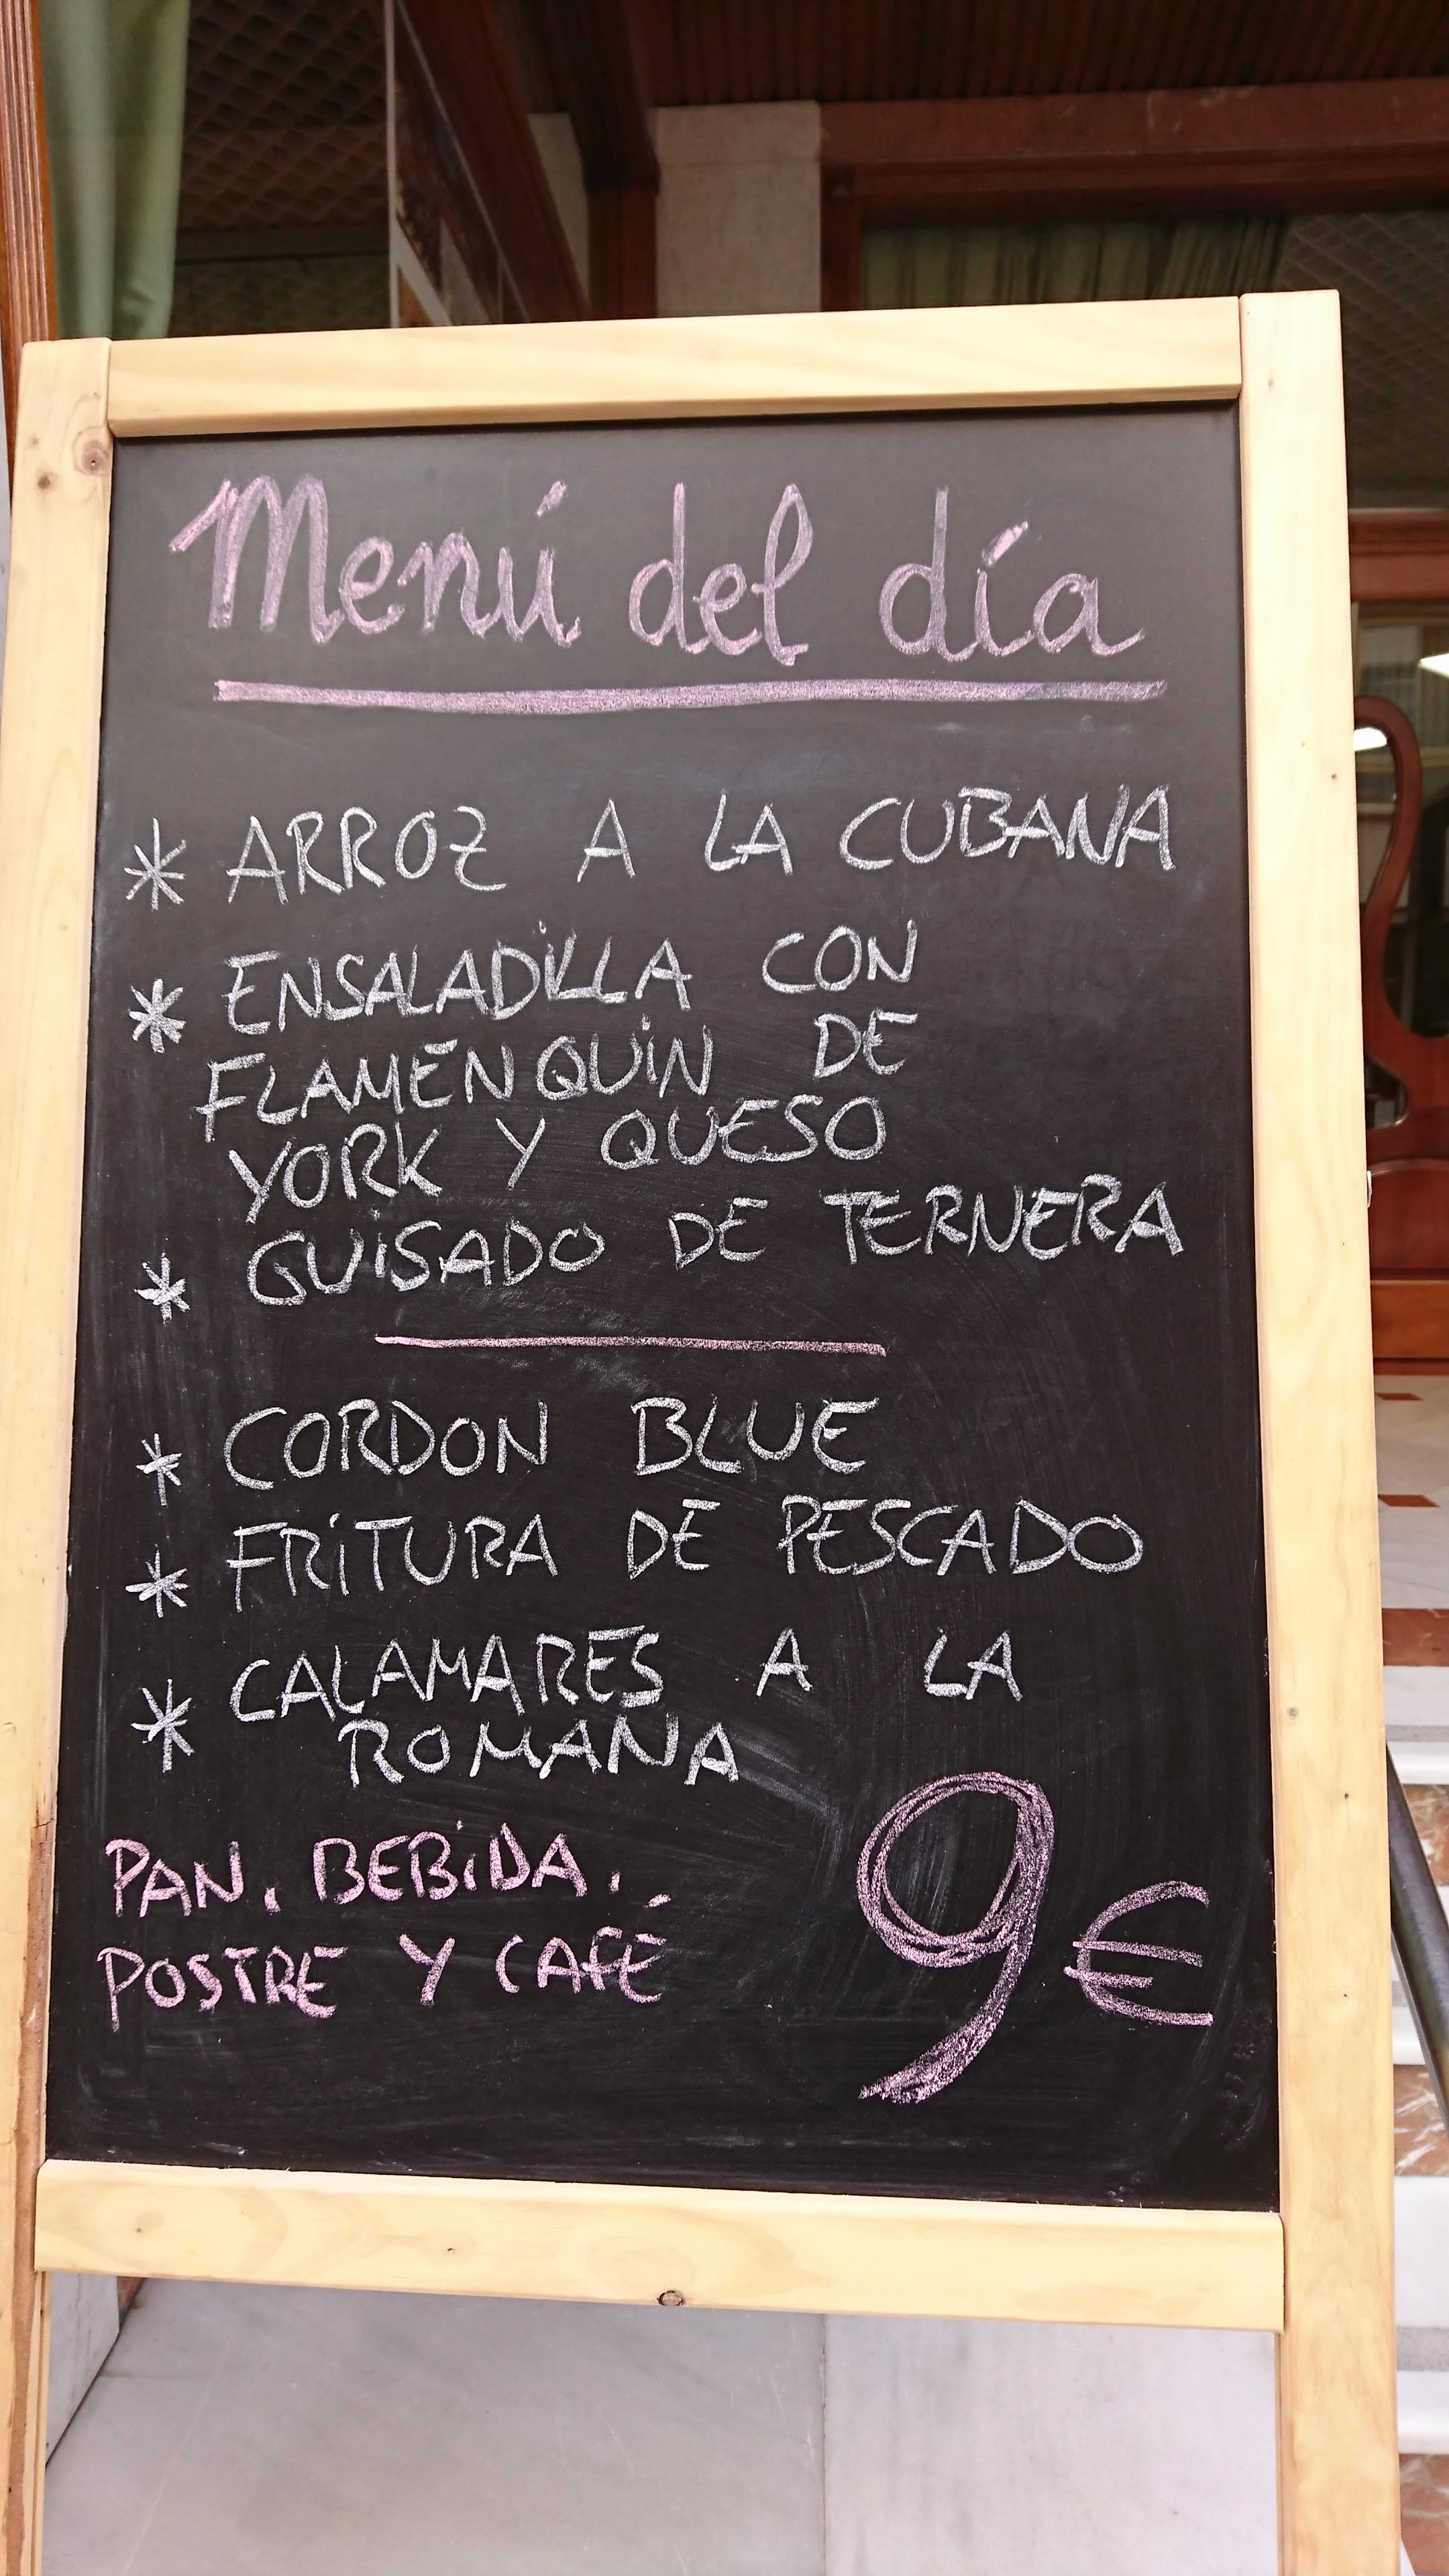 Menú del día
* ARROZ A LA CUBANA
* ENSALADILLA CON
FLAMENQUIN DE
YORK Y QUESO
* GUISADO DE TERNERA
* CORDON BLUE
* FRITURA DE PESCADO
* CALAMARES A LA
ROMANA
PAN, BEBIDA,
POSTRE Y CAFÉ
9€